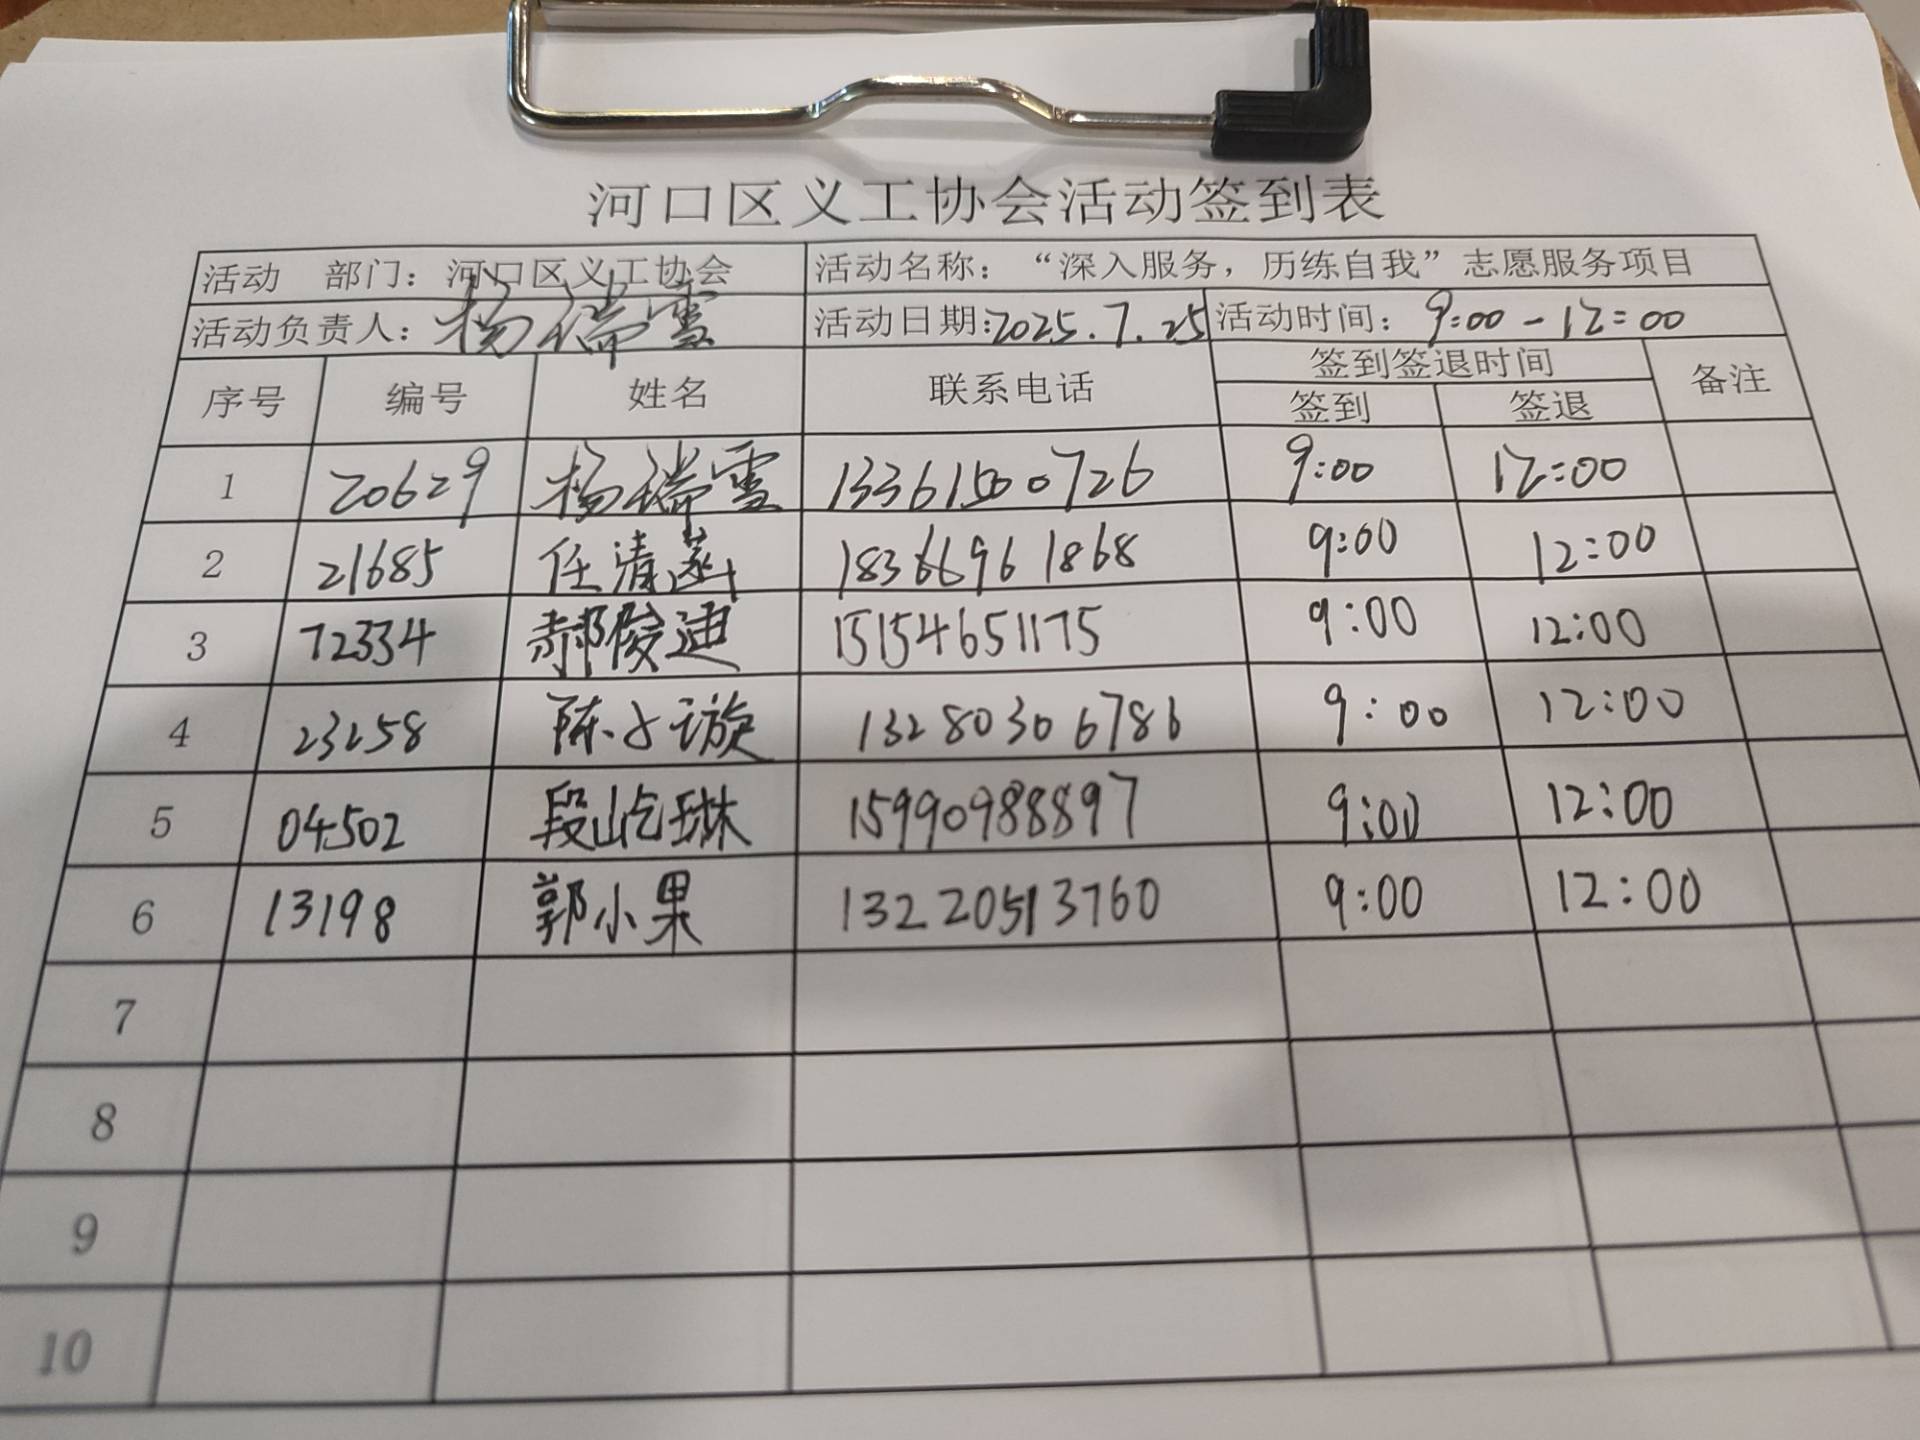 河口区义工协会活动签到表
活动 部门：河口区义工协会 活动名称：“深入服务，历练自我”志愿服务项目
活动负责人：杨瑞雪 活动日期：2025.7.25 活动时间：9:00-12:00
序号 编号 姓名 联系电话 签到签退时间 备注
签到 签退
1 20629 杨瑞雪 13361500726 9:00 12:00
2 21685 任清菡 18366961868 9:00 12:00
3 72334 郝俊迪 15154651175 9:00 12:00
4 23258 陈子璇 13280306786 9:00 12:00
5 04502 段屹琳 15990988897 9:00 12:00
6 13198 郭小果 13220513760 9:00 12:00
7
8
9
10